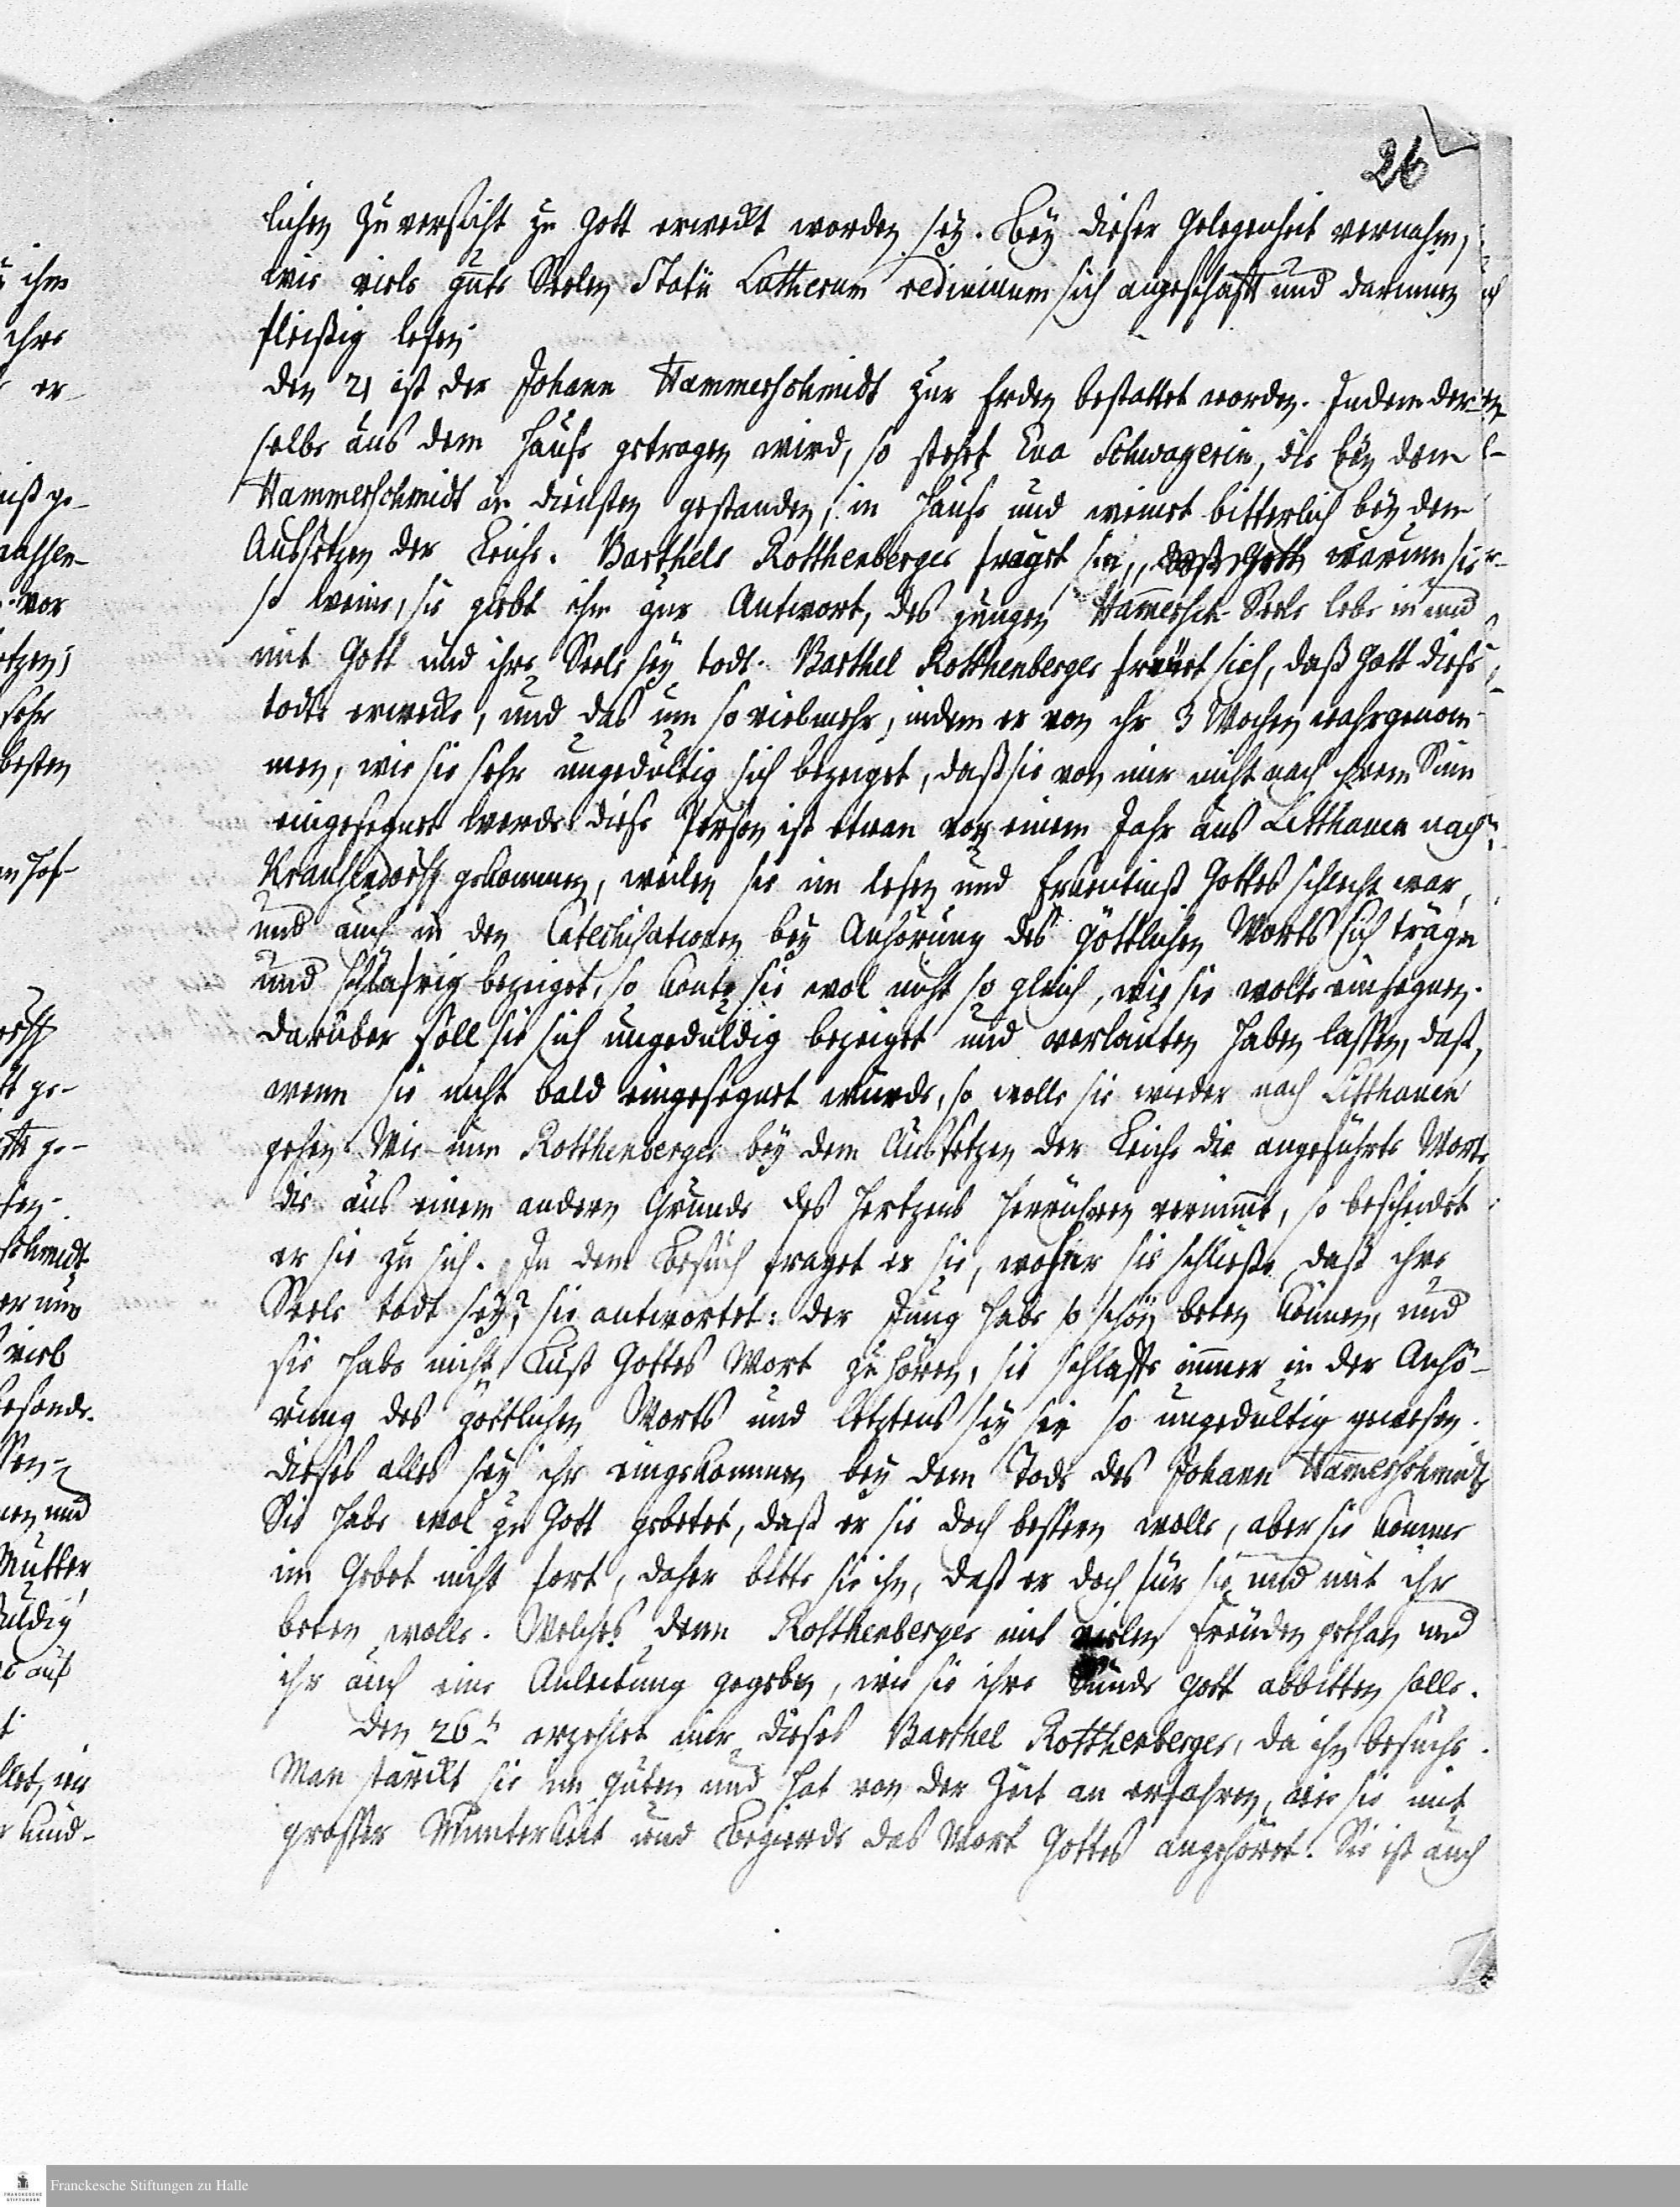 26
lichen Zuversicht zu Gott erweckt worden sey. Bey dieser Gelegenheit vernahm,
wie viele gute Seelen Statii Lutherum redivivum sich angeschafft und darinnen
fleißig lesen.
den 21 ist der Johann Hammerschmidt zur Erden bestattet worden. Indem der
selbe aus dem Hause getragen wird, so stehet Eva Schwagerin, die bey dem
Hammerschmidt in diensten gestanden, im Hause und weinet bitterlich bey dem
Aussetzen der Leiche. Barthels Rotthenberger fraget sie, warum sie
so weine, sie giebt ihm zur Antwort, des jungen Ham̄ersch. Seele lebe in und
mit Gott und ihre Seele sey todt. Barthel Rotthenberger freuet sich, daß Gott diese
todte erwecke, und das um so vielmehr, indem er von ihr 3 Wochen wahrgenom-
men, wie sie sehr ungedultig sich bezeiget, daß sie von mir nicht nach ihrem Sinn
eingesegnet werde. diese Person ist etwan vor einem Jahr aus Litthauen nach
gekommen, weilen sie im lesen und Erkentniß Gottes schlecht war,
und auch in den Catechisationen bey Anhörung des göttlichen Worts sich träge
und schläfrig bezeiget, so konte sie wol nicht so gleich, wie sie wolte einsegnen.
Darüber soll sie sich ungeduldig bezeiget und verlauten haben lassen, daß,
wenn sie nicht bald eingesegnet würde, so wolle sie wieder nach Litthauen
gehen. Wie nun Rotthenberger bey dem Aussetzen der Leiche die angeführte Worte
die aus einem andern Grunde des Hertzens herrühren vernim̄t, so bescheidet
er sie zu sich. In dem Besuch fraget er sie, woher sie schließe, daß ihre
Seele todt sey? sie antwortet: der Jung habe so schön beten können, und
sie habe nicht Lust Gottes Wort zu hören, sie schlaffe immer in der Anhö-
rung des göttlichen Worts und letztens sey sie so ungedultig gewesen.
dieses alles sey ihr eingekommen bey dem Tode des Johann Ham̄erschmidts
Sie habe wol zu Gott gebetet, daß er sie doch bessern wolle, aber sie komme
im Gebet nicht fort, daher bitte sie ihn, daß er doch für sie und mit ihr
beten wolle. Welches denn Rotthenberger mit vielen Freuden gethan und
ihr auch eine Anleitung gegeben, wie sie ihre Sünde Gott abbitten solle.
den 26t. erzehlet mir dieses Barthel Rotthenberger, da ihn besuche.
Man stärckt sie im guten und hat von der Zeit an erfahren, wie sie mit
grosser Munterkeit und Begierde das Wort Gottes angehöret. Sie ist auch
Franckesche Stiftungen zu Halle